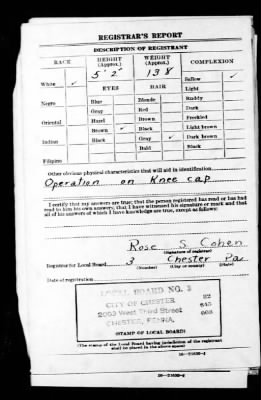 REGISTRAR'S REPORT
DESCRIPTION OF REGISTRANT
RACE HEIGHT (Approx.) WEIGHT (Approx.) COMPLEXION
5' 2" 138 Sallow ✓
White ✓ EYES HAIR Light
Ruddy
Negro Blue Blonde Dark
Gray Red Freckled
Oriental Hazel Brown Light brown
Brown ✓ Black Dark brown
Indian Black Gray ✓ Black
Bald
Filipino
Other obvious physical characteristics that will aid in identification
Operation on Knee cap
I certify that my answers are true; that the person registered has read or has had
read to him his own answers; that I have witnessed his signature or mark and that
all of his answers of which I have knowledge are true, except as follows:
Rose S. Cohen
(Signature of registrar)
Registrar for Local Board 3 Chester Pa.
(Number) (City or county) (State)
Date of registration
LOCAL BOARD NO. 3
CITY OF CHESTER
2003 West Third Street
CHESTER, PENNA.
(STAMP OF LOCAL BOARD)
(The stamp of the Local Board having jurisdiction of the registrant
shall be placed in the above space)